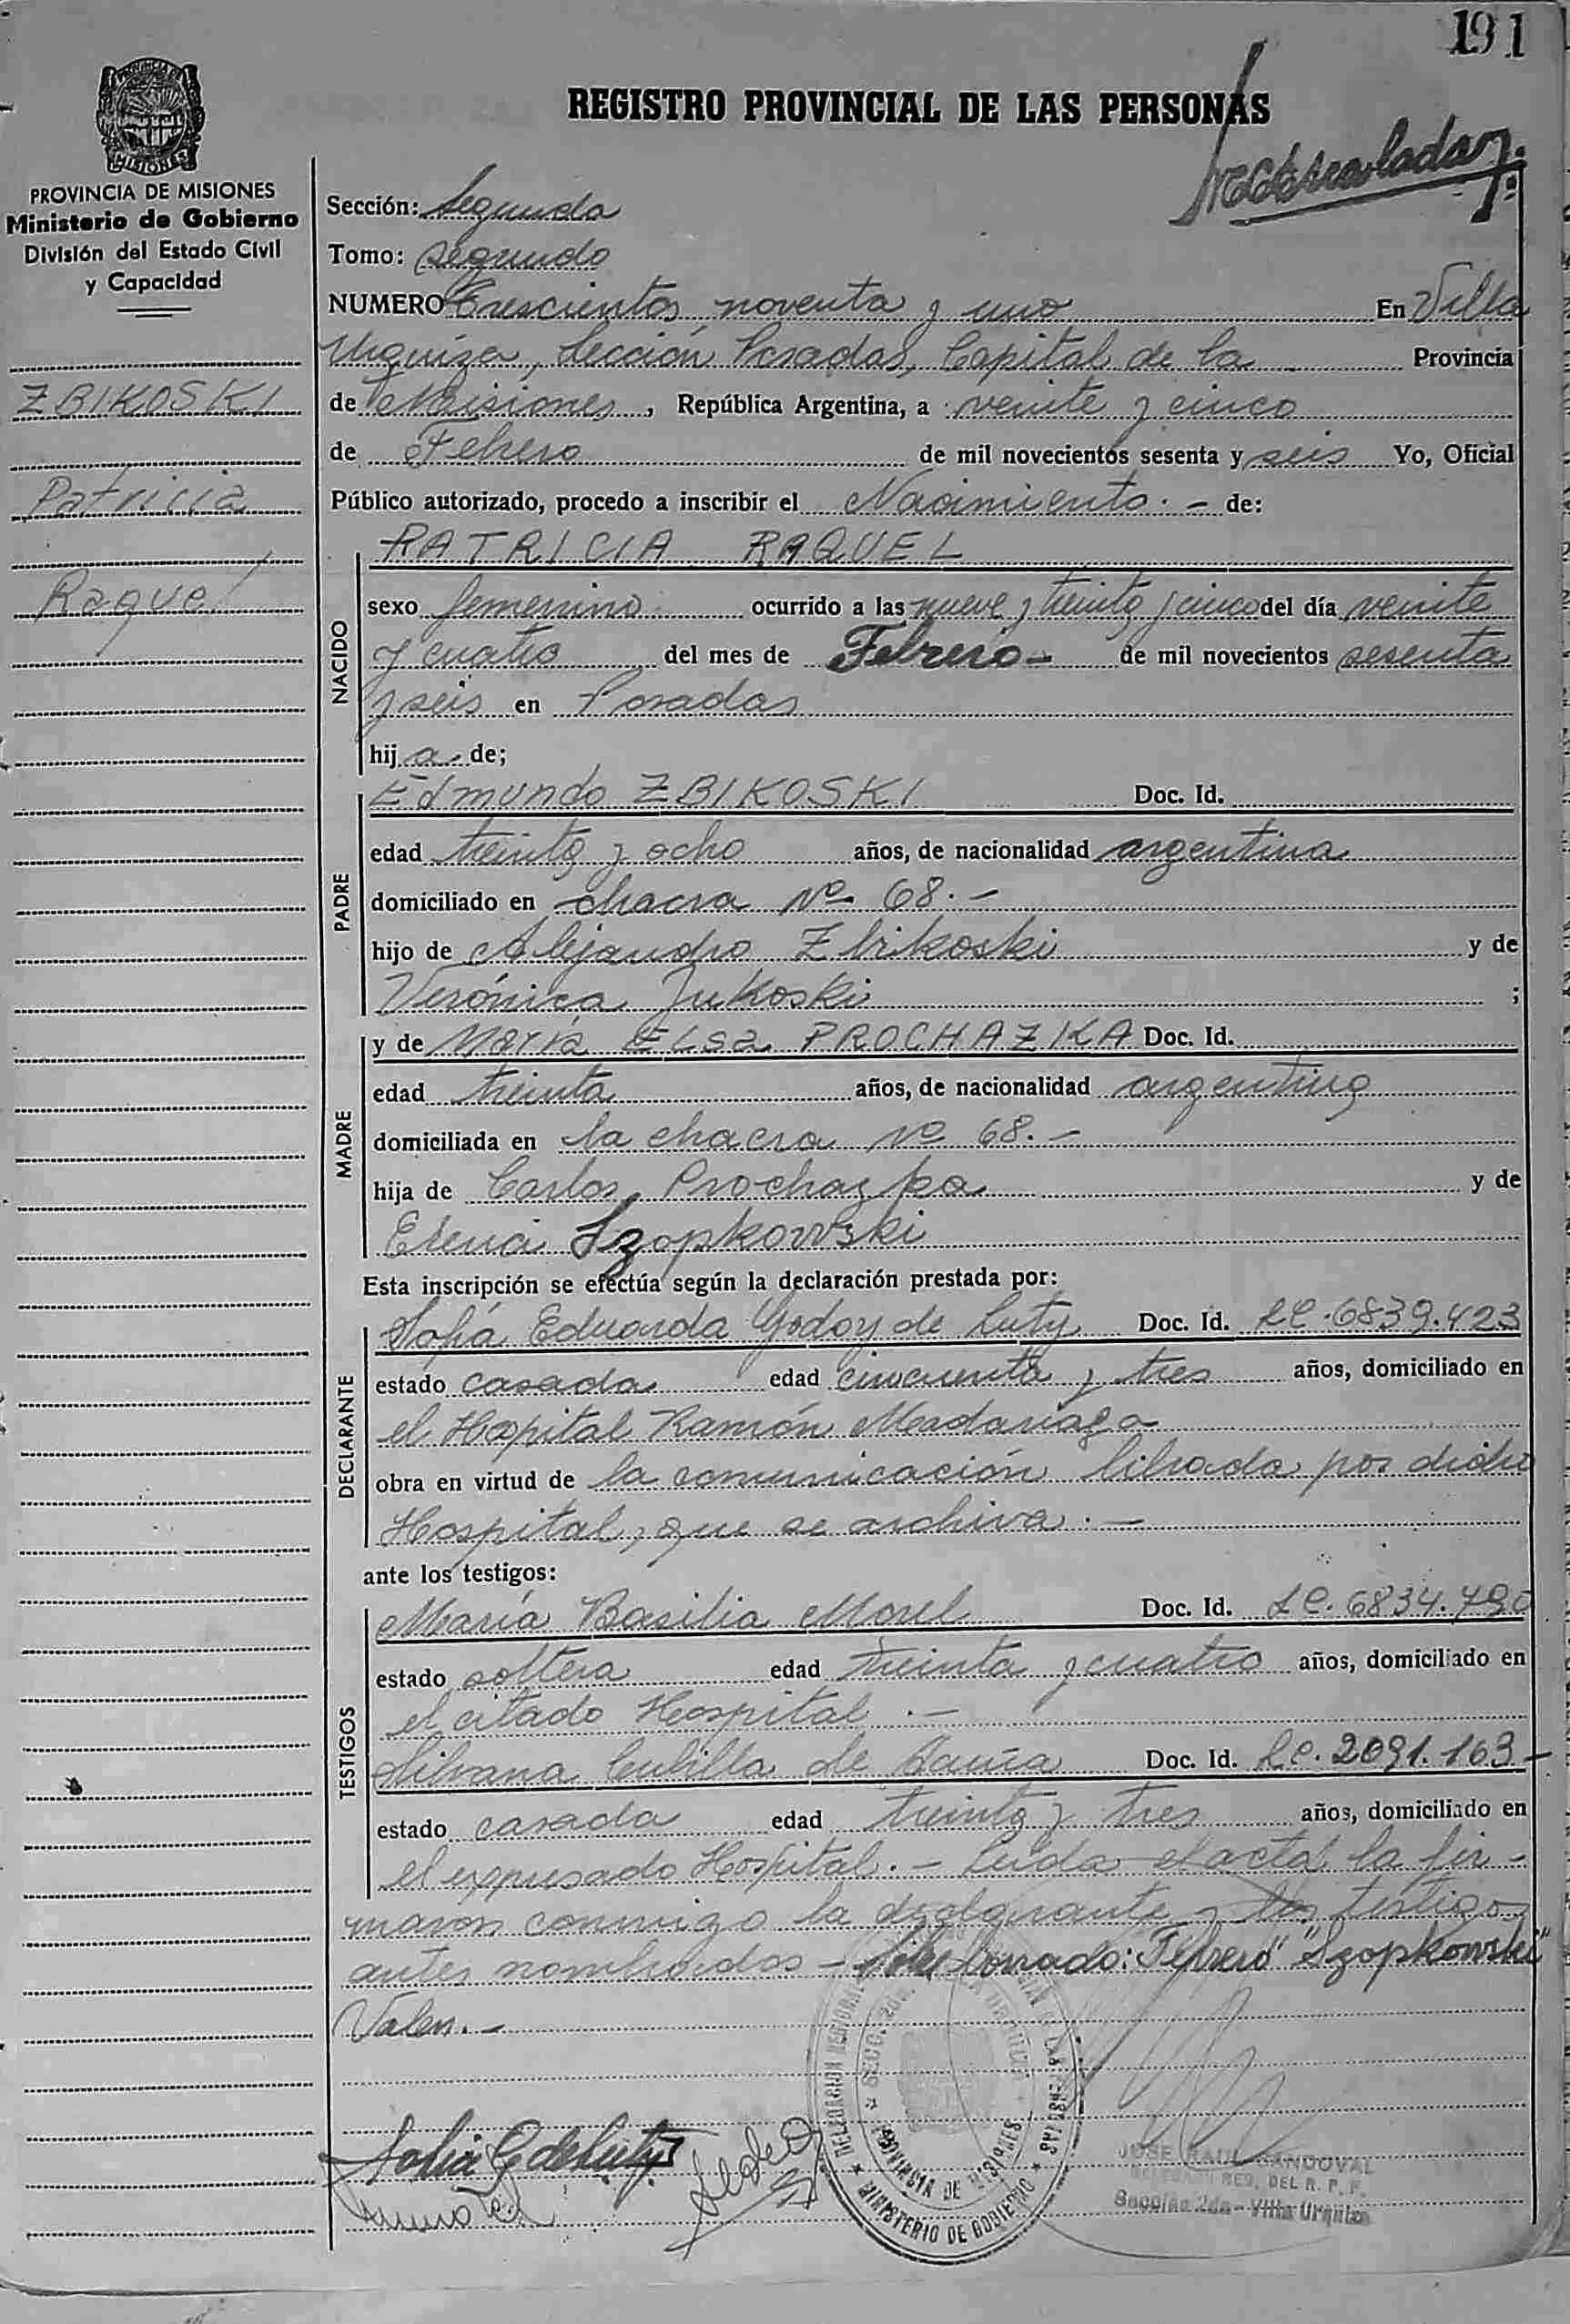 191
REGISTRO PROVINCIAL DE LAS PERSONAS
PROVINCIA DE MISIONES
Ministerio de Gobierno
División del Estado Civil
y Capacidad
ZBIKOSKI
Patricia
Raquel
Sección: Segunda
Tomo: segundo
NUMERO Trescientos noventa y uno En Villa
Urquiza, Sección Posadas, Capital de la Provincia
de Misiones, República Argentina, a veinte y cinco
de Febrero de mil novecientos sesenta y seis Yo, Oficial
Público autorizado, procedo a inscribir el Nacimiento.- de:
PATRICIA RAQUEL
NACIDO
sexo femenino ocurrido a las nueve y treinta y cinco del día veinte
y cuatro del mes de Febrero- de mil novecientos sesenta
y seis en Posadas
hija de;
PADRE
Edmundo ZBIKOSKI Doc. Id.
edad treinta y ocho años, de nacionalidad argentina
domiciliado en chacra Nº 68.-
hijo de Alejandro Zbikoski y de
Verónica Jukoski ;
MADRE
y de María ELSa PROCHAZKA Doc. Id.
edad treinta años, de nacionalidad argentina
domiciliada en la chacra Nº 68.-
hija de Carlos Prochazka y de
Elena Szopkowski
Esta inscripción se efectúa según la declaración prestada por:
DECLARANTE
Sofía Eduarda Godoy de Luty Doc. Id. LC.6839.423
estado casada edad cincuenta y tres años, domiciliado en
el Hospital Ramón Madariaga
obra en virtud de la comunicación librada por dicho
Hospital, que se archiva.-
ante los testigos:
TESTIGOS
María Basilia Morel Doc. Id. LC.6834.790
estado soltera edad treinta y cuatro años, domiciliado en
el citado Hospital.-
Silvana Cubilla de Doc. Id. LC.2091.163-
estado casada edad treinta y tres años, domiciliado en
el expresado Hospital.- Leida el acta la fir-
maron conmigo la declarante y los testigos
antes nombrados - Sobre borrado: "Febrero" "Szopkowski"
Valen.-
Sofía G de Luty
MINISTERIO DE GOBIERNO
PROVINCIA DE MISIONES
JOSE RAUL SANDOVAL
DEL R. P. P.
Sección 2da - Villa Urquiza